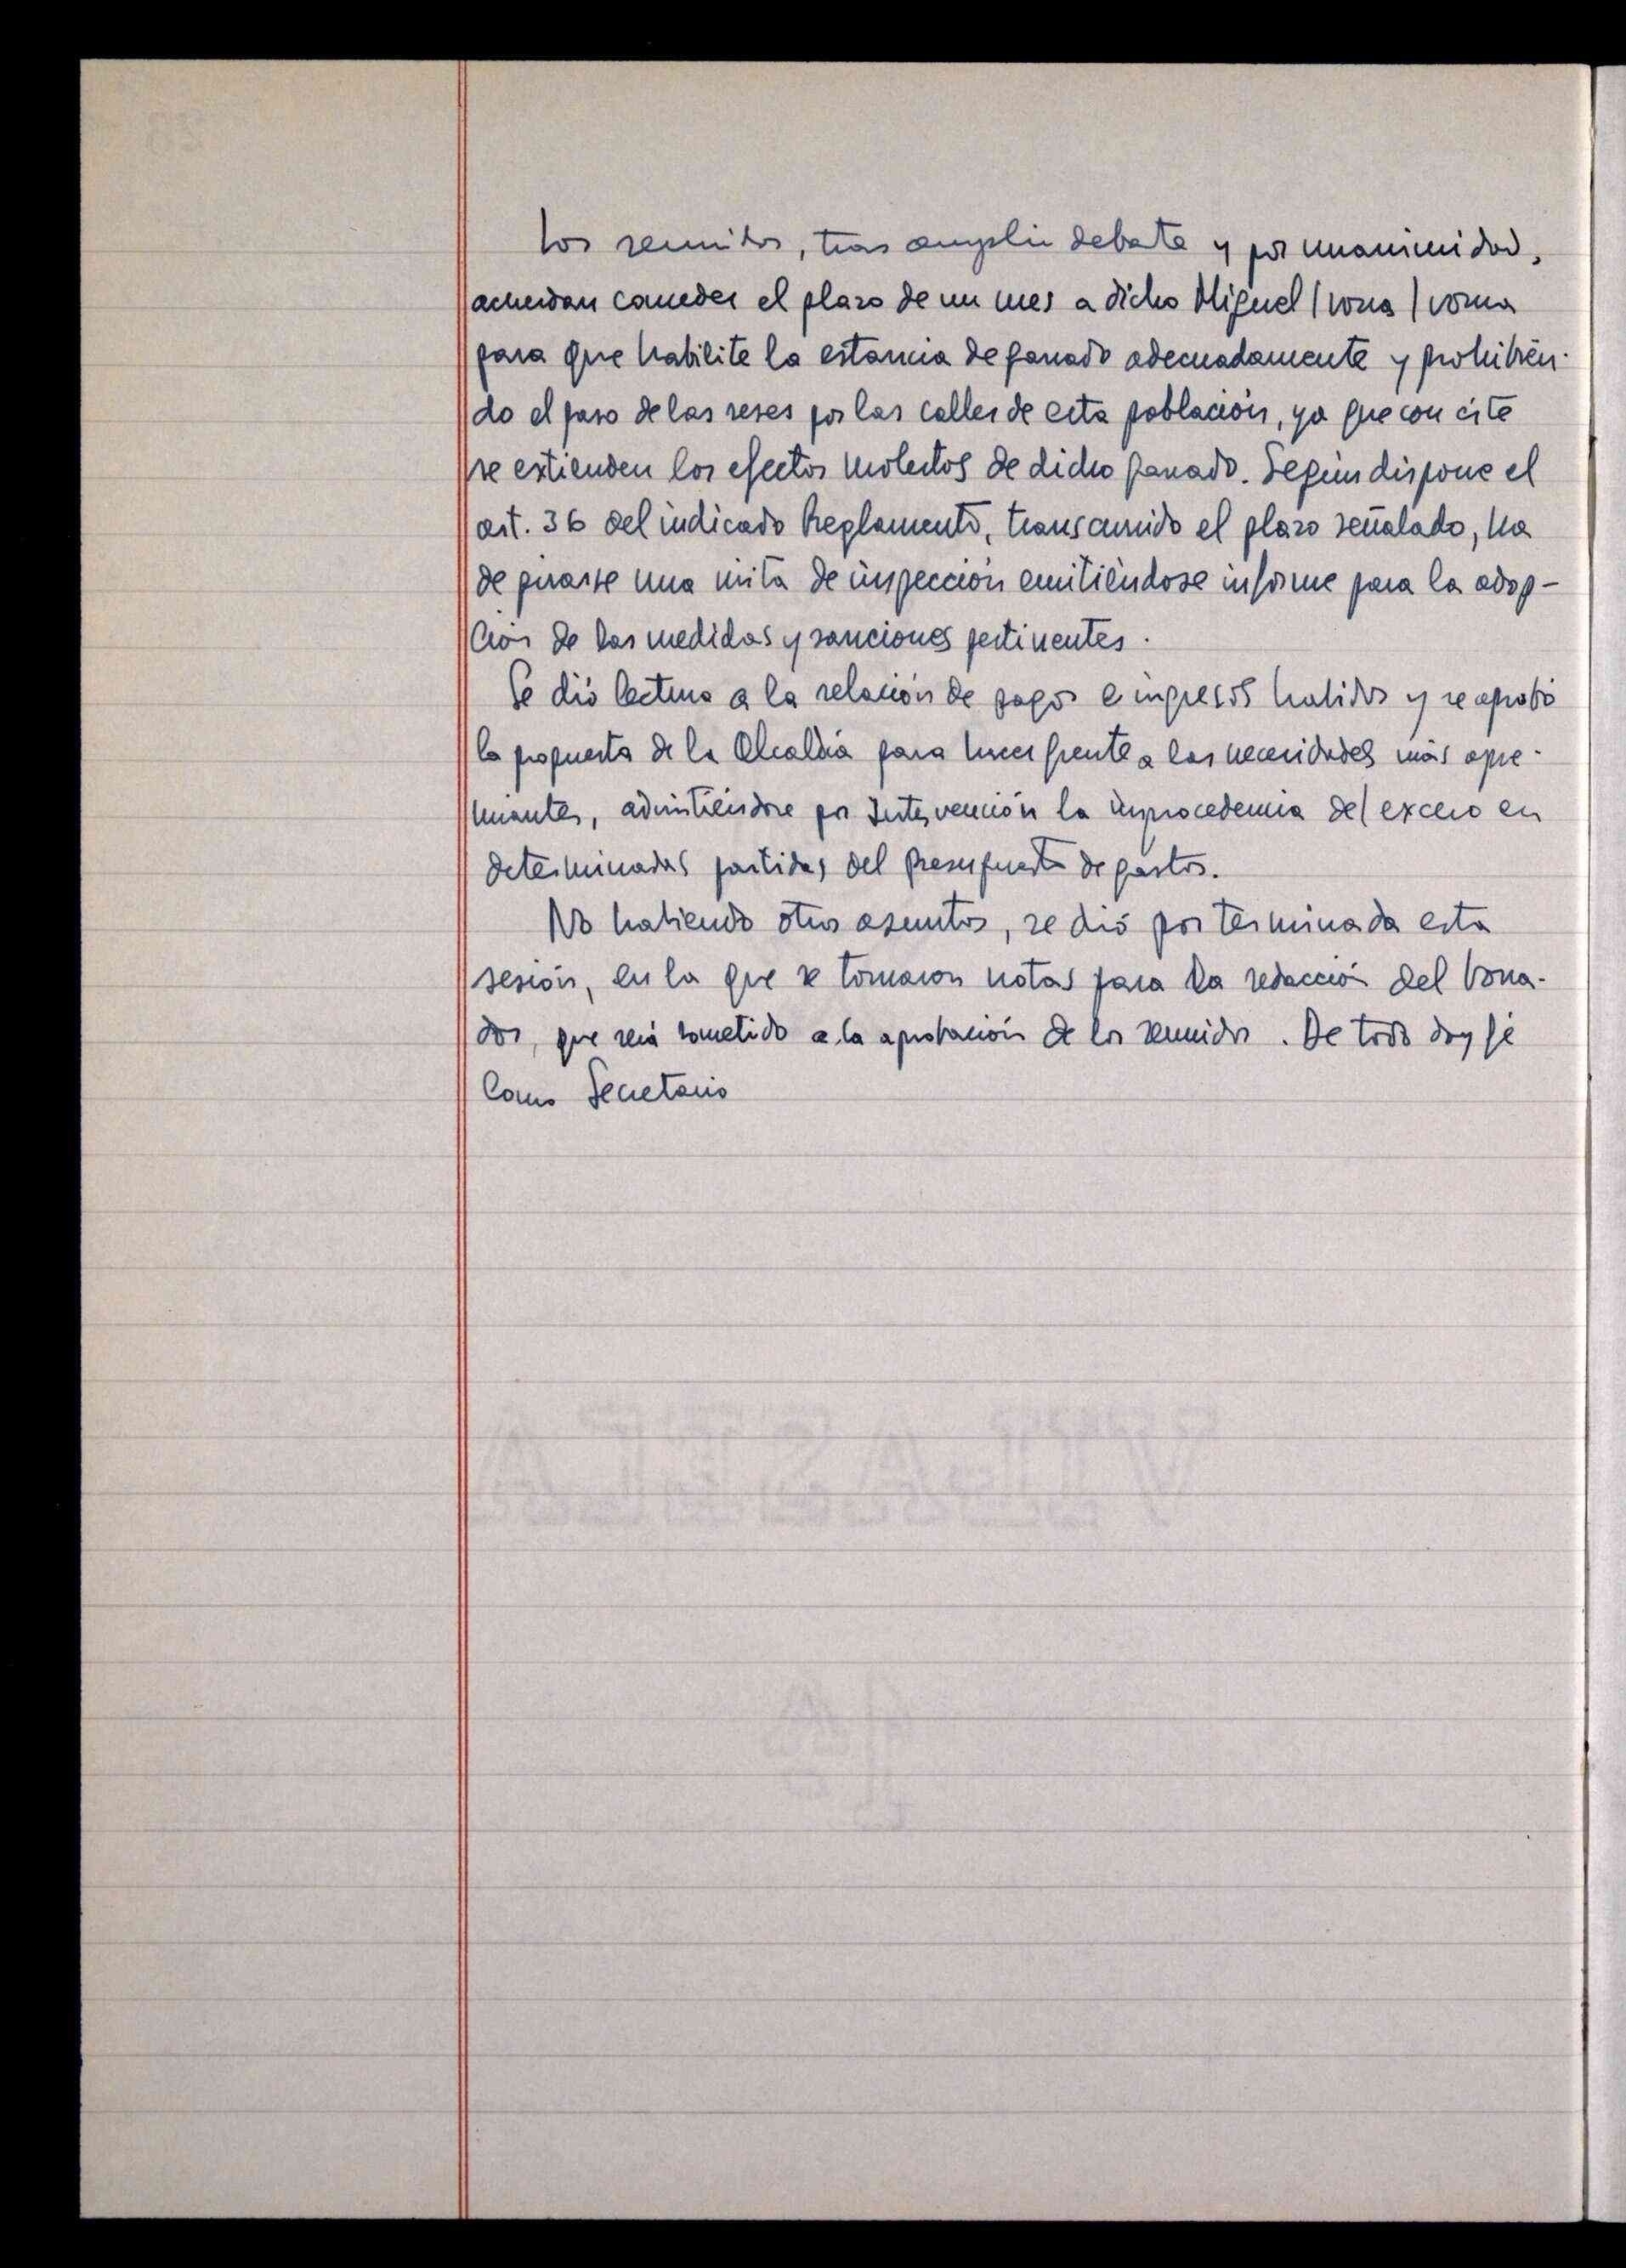 Los reunidos, tras amplio debate y por unanimidad,
acuerdan conceder el plazo de un mes a dicho Miguel
para que habilite la estancia de ganado adecuadamente y prohibién-
do el paso de las reses por las calles de esta población, ya que con éste
se extienden los efectos molestos de dicho ganado. Según dispone el
art. 36 del indicado Reglamento, transcurrido el plazo señalado, ha
de girarse una visita de inspección emitiéndose informe para la adop-
ción de las medidas y sanciones pertinentes.
Se dió lectura a la relación de pagos e ingresos habidos y se aprobó
la propuesta de la Alcaldía para hacer frente a las necesidades más apre-
miantes, advirtiéndose por Intervención la improcedencia del exceso en
determinadas partidas del Presupuesto de gastos.
No habiendo otros asuntos, se dió por terminada esta
sesión, en la que se tomaron notas para la redacción del borra-
dor, que será sometido a la aprobación de los reunidos. De todo doy fé
como Secretario